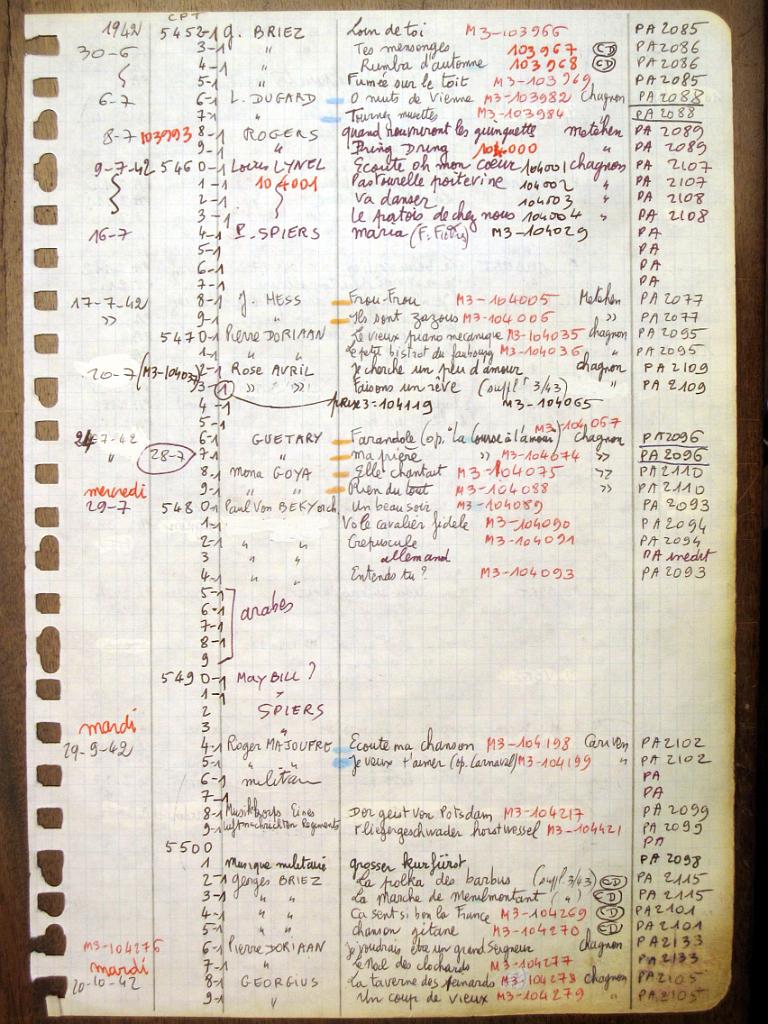 1942 CPT 5452-1 G. BRIEZ Loin de toi M3-103966 PA 2085
30-6 3-1 " Tes mensonges 103967 CD PA 2086
4-1 " Rumba d'automne 103968 CD PA 2086
5-1 " Fumée sur le toit M3-103969 PA 2085
6-7 6-1 L. DUGARD O nuits de Vienne M3-103982 Chagnon PA 2088
7-1 " Tournez musettes M3-103984 " PA 2088
8-7 103993 8-1 ROGERS quand rouvriront les guinguette metehen PA 2089
9-1 " Dring Dring 104000 " PA 2089
9-7-42 5460-1 Louis LYNEL Ecoute oh mon cœur 104001 chagnon PA 2107
1-1 104001 Pastourelle poitevine 104002 " PA 2107
2-1 Va danser 104003 " PA 2108
3-1 Le patois de chez nous 104004 " PA 2108
16-7 4-1 P. SPIERS maria M3-104029 PA
5-1 PA
6-1 PA
7-1 PA
17-7-42 8-1 J. HESS Frou-Frou M3-104005 Metehen PA 2077
" 9-1 " Ils sont zazous M3-104006 " PA 2077
5470-1 Pierre DORIAAN Le vieux piano mecanique M3-104035 chagnon PA 2095
1-1 " " Le petit bistrot du faubourg M3-104036 " PA 2095
20-7 (M3-104037) 2-1 Rose AVRIL Je cherche un peu d'amour chagnon PA 2109
3-1 " " Faisons un rêve (suppl' 3/43) " PA 2109
4-1 prise 3=104119 M3-104065
5-1 M3-104067
24-7-42 6-1 GUETARY Farandole (op. "la Course à l'amour) chagnon PA 2096
" 28-7 7-1 " ma prière " M3-104074 " PA 2096
8-1 Mona GOYA Elle chantait M3-104075 " PA 2110
mercredi 9-1 " " Rien du tout M3-104088 " PA 2110
29-7 5480-1 Paul Von BEKY Un beau soir M3-104089 PA 2093
1-1 Vole cavalier fidele M3-104090 PA 2094
2-1 " " Crepuscule M3-104091 PA 2094
3 " " allemand PA inedit
4-1 " " Entends tu ? M3-104093 PA 2093
5-1
6-1 arabes
7-1
8-1
9
5490-1 May BILL ?
1-1 "
2 SPIERS
mardi 3 "
29-9-42 4-1 Roger MAJOUFRE Ecoute ma chanson M3-104198 Cariven PA 2102
5-1 " " Je veux t'aimer (op. Carnaval) M3-104199 " PA 2102
6-1 militair PA
7-1 PA
8-1 Musikkorps Eines Der geist von Potsdam M3-104217 PA 2099
9-1 Luftnachrichten Regiments Fliegergeschwader horst wessel M3-104421 PA 2099
5500 PA
1 Musique militaire grosser kurfürst PA 2098
2-1 Georges BRIEZ La polka des barbus (suppl 3/43) CD PA 2115
3-1 " " La marche de menilmontant ( " ) CD PA 2115
4-1 " " Ca sent si bon la France M3-104269 CD PA 2101
5-1 " " chanson gitane M3-104270 CD PA 2101
M3-104276 6-1 Pierre DORIAAN je voudrais être un grand Seigneur chagnon PA 2133
mardi 7-1 " Le Noel des clochards M3-104277 " PA 2133
20-10-42 8-1 GEORGIUS La taverne des peinards M3-104278 chagnon PA 2105
9-1 " Un coup de vieux M3-104279 " PA 2105